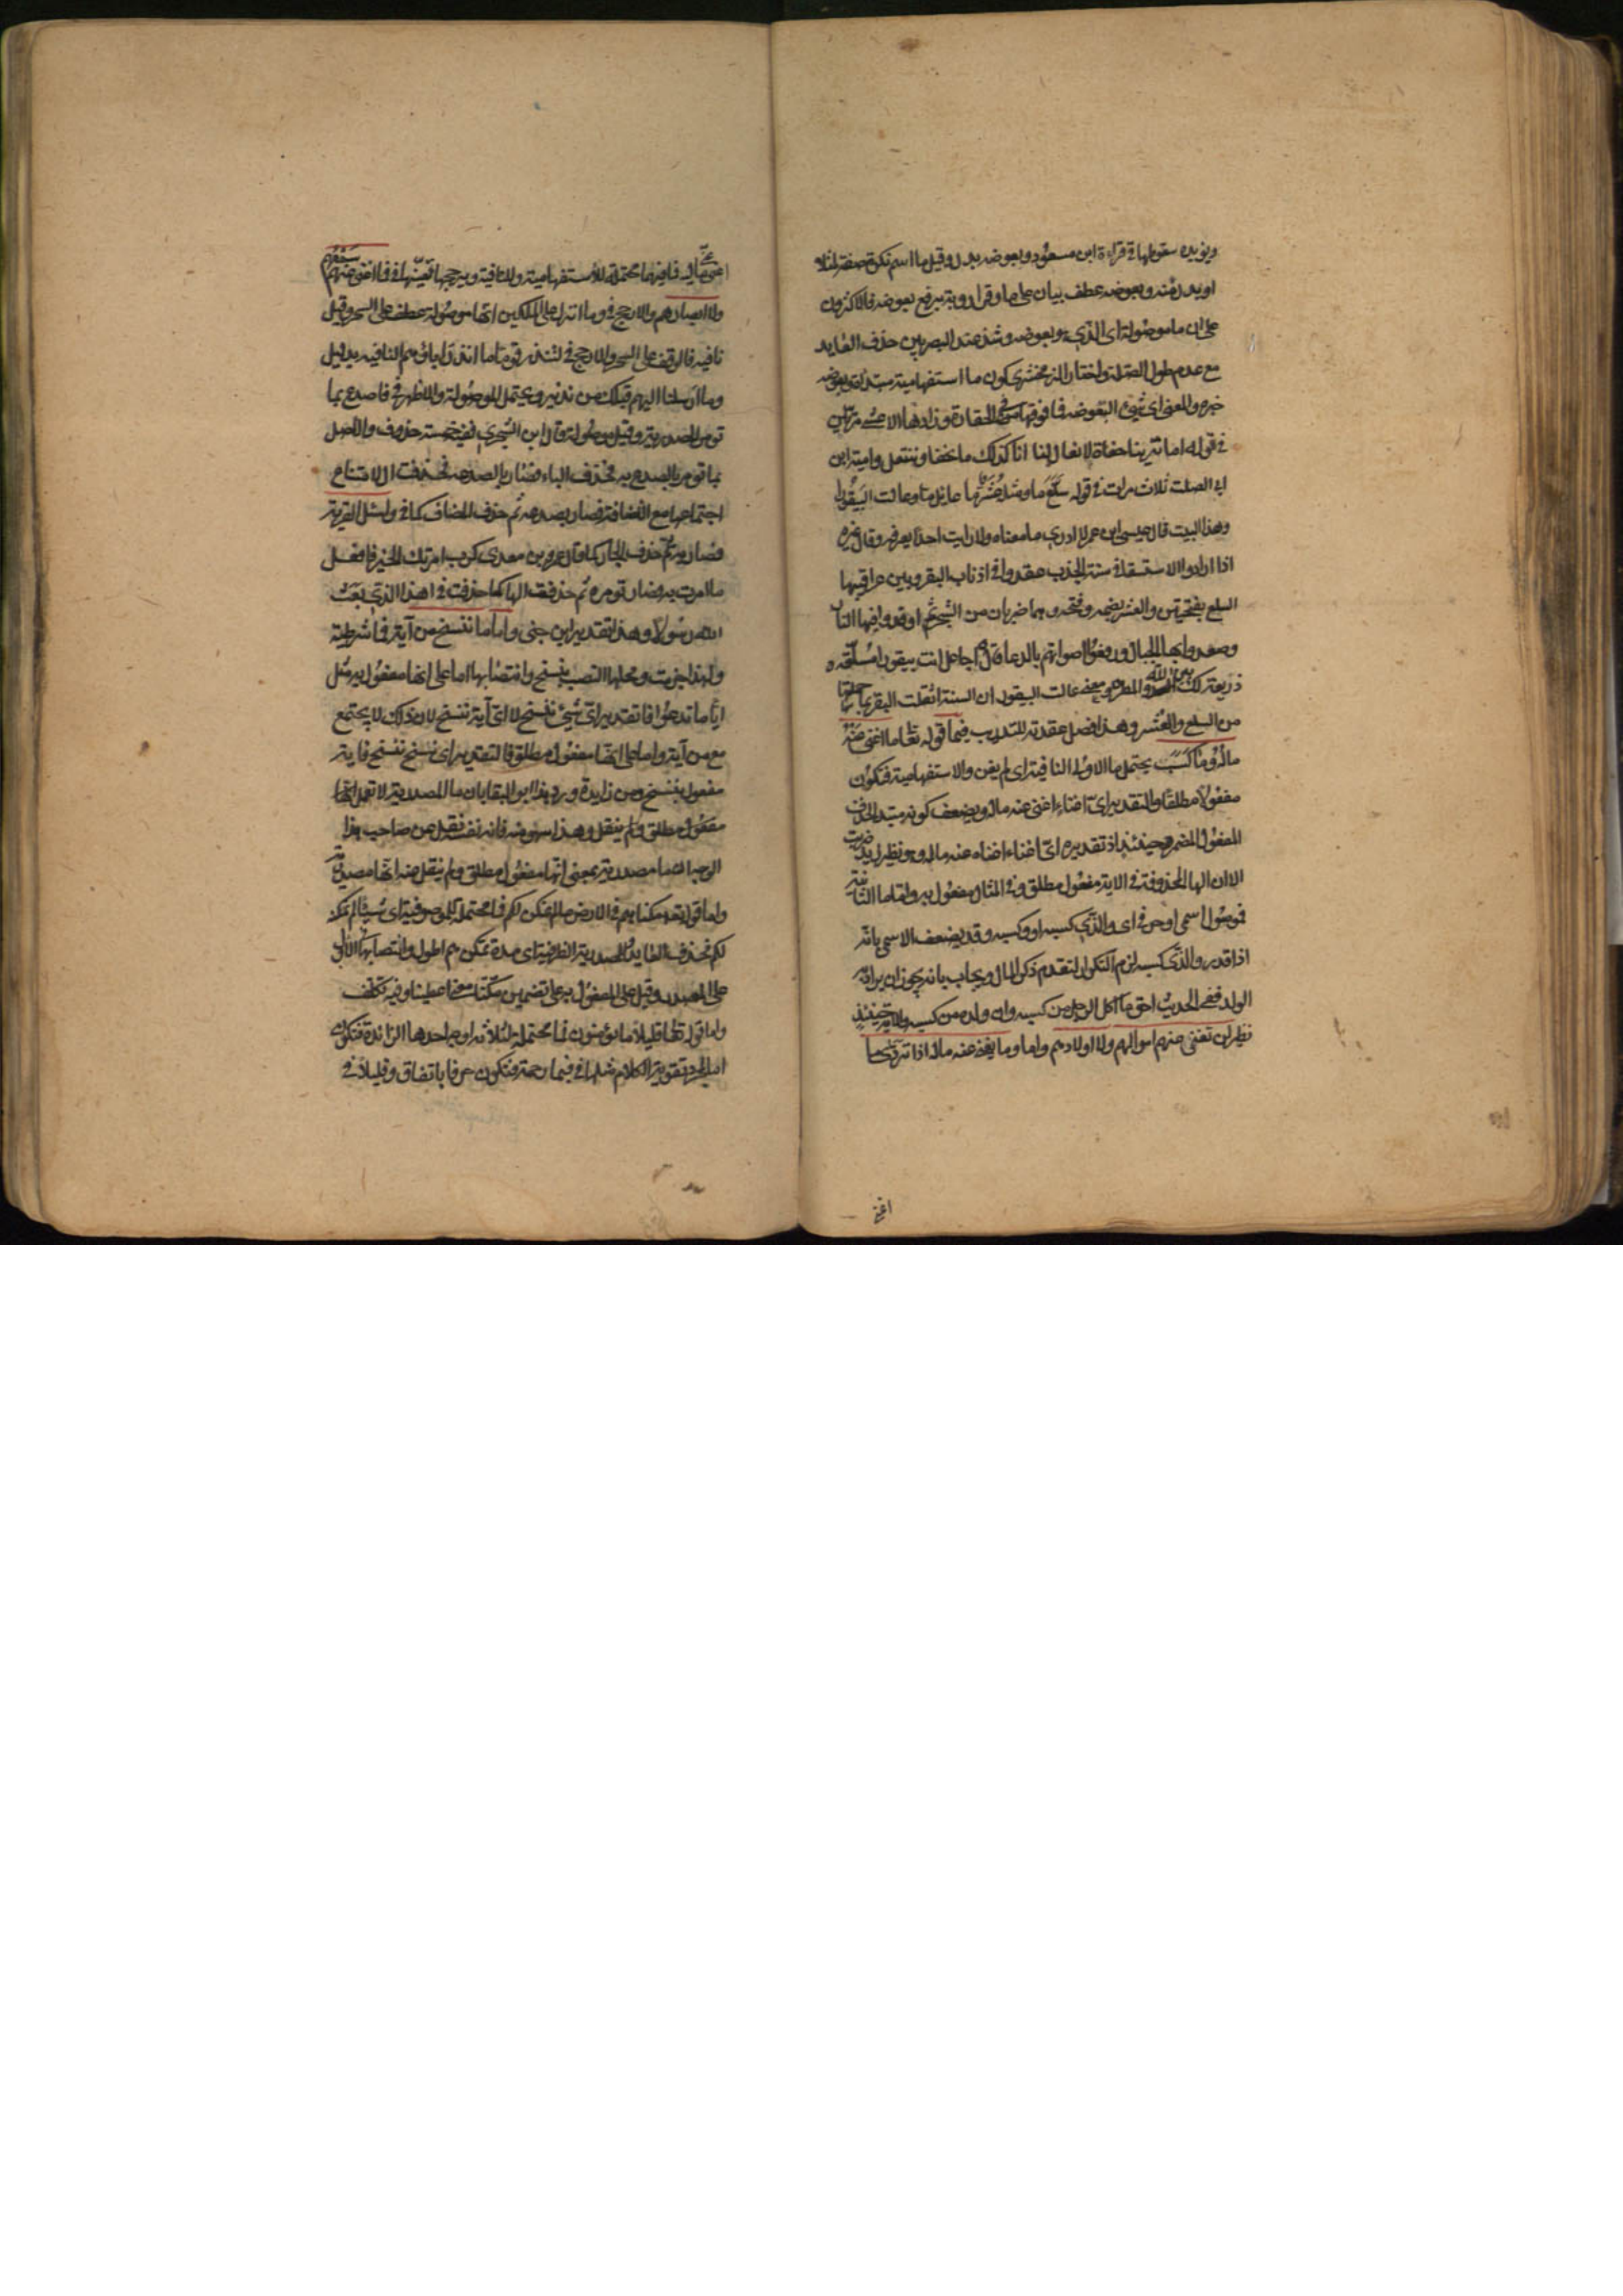 ويؤيده سقوطها في قراءة ابن مسعود وبعوضه بدل وقيل ما اسم نكرة صفة لمثلا
او بدل منه وبعوضه عطف بيان على ما وقرا رؤبة برفع بعوضه فالاكثرون
على ان ما موصولة اى الذي هو بعوضه وشذ عند البصريين حذف العايد
مع عدم طول الصلة واختار الزمخشري كون ما استفهامية مبتدا وبعوضه
خبره والمعنى اى شيء البعوضه فما فوقها في الحقارة وزادها الاعشى مرتين
في قوله اما ترينا حفاة لا نعال لنا انا كذلك ما نحفا وننتعل وامية ابن
ابي الصلت ثلاث مرات في قوله سلع ما ومثله عشر ما عايل ما وعالت البيقورا
وهذا البيت قال عيسى ابن عمر لا ادري ما معناه ولا رايت احدا يعرفه وقال غيره
اذا ارادوا الاستسقا في سنة الجذب عقدوا في اذناب البقر وبين عراقيبها
السلع بفتحتين والعشر بضمه وفتحه وهما ضربان من الشجر ثم اوقدوا فيها النار
وصعدوا بها الجبال ورفعوا اصواتهم بالدعا قال اجاعل انت بيقورا مسلعة
ذريعة لك بين الله والمطر ومعنى عالت البيقور ان السنة اثقلت البقر بما حملتها
من السلع والعشر وهذا فصل عقدته للتدريب فيما قوله تعالى ما اغنى عنه
ماله وما كسب يحتمل ما الاولى النافية اى لم يغن والاستفهامية فتكون
مفعولا مطلقا والتقدير اى اغناء اغنى عنه ماله ويضعف كونه مبتدا لحذف
المفعول المضمر حينئذ اذ تقديره اى اغناء اغناه عنه ماله وهو نظير زيد ضربت
الا ان الها المحذوفة في الاية مفعول مطلق وفي المثال مفعول به واما ما الثانية
فموصول اسمي او حرفي اى والذي كسبه او وكسبه وقد يضعف الاسمي بانه
اذا قدر والذي كسبه لزم التكرار لتقدم ذكر المال ويجاب بانه يجوز ان يراد به
الولد ففي الحديث احق ما اكل الرجل من كسبه وان ولده من كسبه والاية حينئذ
نظير لن تغني عنهم اموالهم ولا اولادهم واما وما يغني عنه ماله اذا تردى ما
اغنى
اغنى عني ماليه فما فيهما محتملة للاستفهامية وللنافية ويرجحها تعينها في فما اغنى عنهم سمعهم
ولا ابصارهم والارجح في وما انزل على الملكين انها موصولة عطف على السحر وقيل
نافيه فالوقف على السحر والارجح في لتنذر قوما ما انذر اباؤهم النافيه بدليل
وما ارسلنا اليهم قبلك من نذير ويحتمل الموصولة والاظهر في فاصدع بما
تومر المصدرية وقيل موصولة قال ابن الشجري ففيه خمسة حذوف والاصل
بما تومر بالصدع به فحذفت الباء فصار بالصدعه فحذفت ال لامتناع
اجتماعها مع الاضافة فصار بصدعه ثم حذف المضاف كما في واسئل القرية
فصار به ثم حذف الجار كما قال عمرو بن معدي كرب امرتك الخير فافعل
ما امرت به فصار تومره ثم حذفت الها كما حذفت في اهذا الذي بعث
الله رسولا وهذا تقدير ابن جني واما ما ننسخ من آية فما شرطية
ولهذا جزمت ومحلها النصب بننسخ وانتصابها اما على انها مفعول به مثل
ايا ما تدعوا فالتقدير اى شيء ننسخ لا اى آية ننسخ لان ذلك لا يجتمع
مع من آية واما على انها مفعول مطلق فالتقدير اى نسخ ننسخ فاية
مفعول بننسخ ومن زايدة ورد هذا ابو البقا بان ما المصدرية لا تعمل انها
مفعول مطلق ولم ينقل وهذا سهو منه فانه نفسه نقل عن صاحب هذا
الوجه ان ما مصدرية بمعنى انها مفعول مطلق ولم ينقل عنه انها مصدرية
واما قوله تعالى مكناهم في الارض ما لم نمكن لكم فما محتملة للموصوفية اى شيئا لم نمكنه
لكم فحذف العايد وللمصدرية الظرفية اى مدة تمكنهم اطول وانتصابها في الاول
على المصدر وقيل على المفعول به على تضمين مكنا معنى اعطينا وفيه تكلف
واما قوله تعالى فقليلا ما تؤمنون فما محتملة لثلاثة اوجه احدها الزائدة فتكون
اما لمجرد تقوية الكلام مثلها في فبما رحمة فتكون حرفا باتفاق وقليلا في